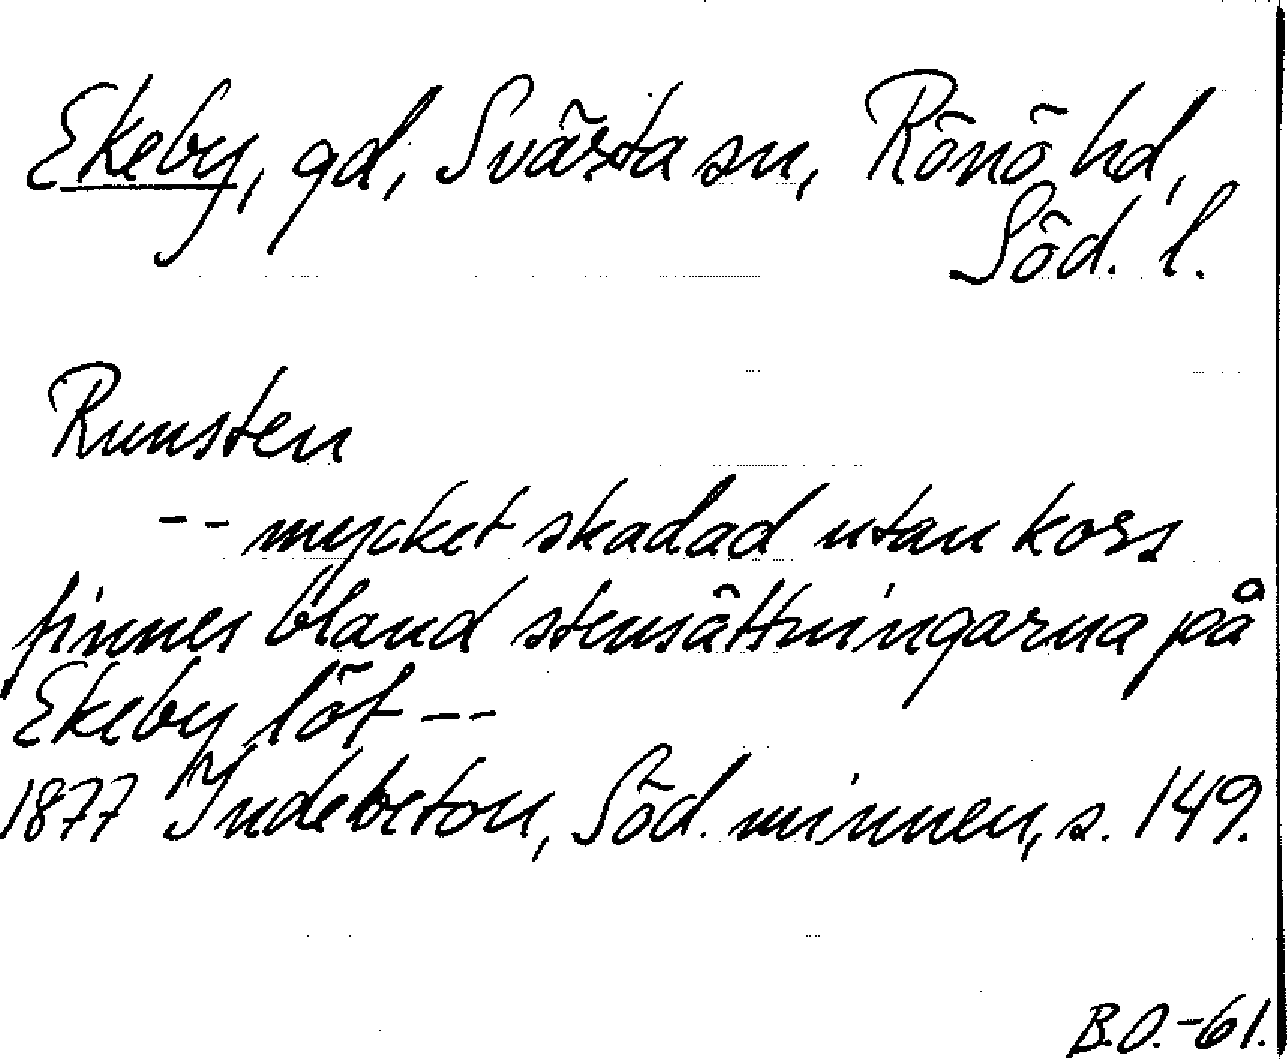 Ekeby, gd, Svärta sn, Rönö hd,
Söd. l.
Runsten
-- mycket skadad utan kors
finnes bland stensättningarna på
Ekeby löt --
1877 Indebetou, Söd. minnen, s. 149.
B.O.-61.